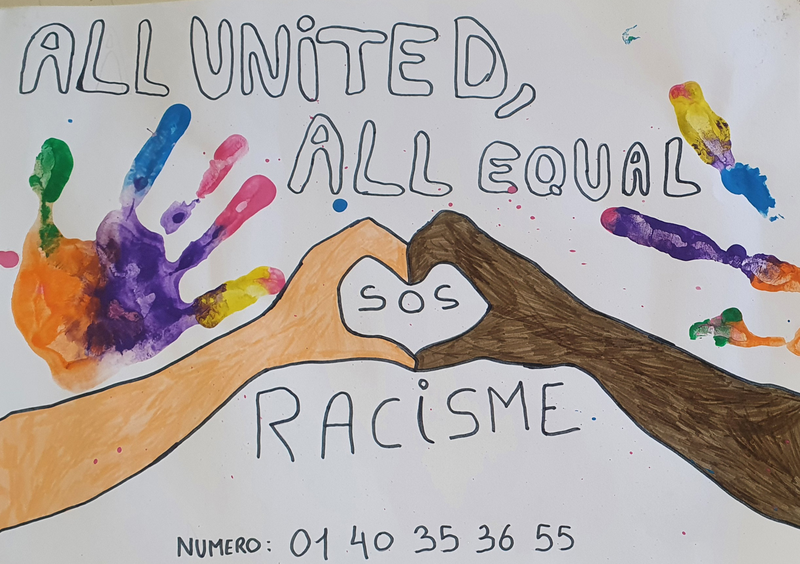 ALL UNiTED,
ALL EQUAL
SOS
RACiSME
NUMERO: 01 40 35 36 55